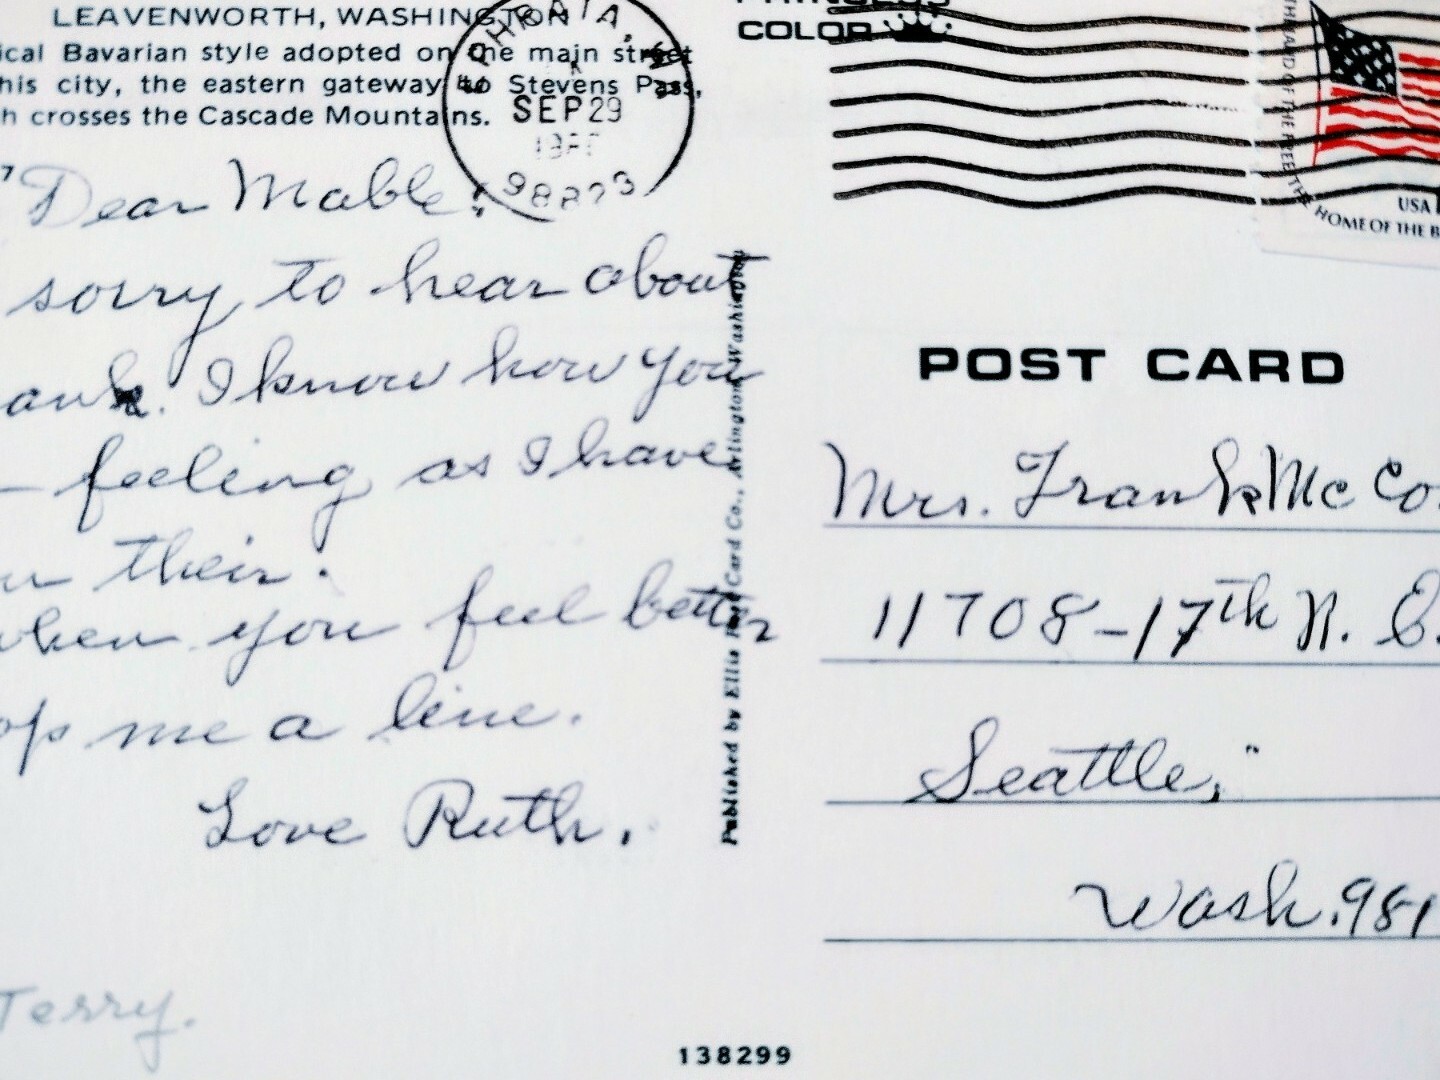 LEAVENWORTH, WASHINGTON
ical Bavarian style adopted on the main street
his city, the eastern gateway to Stevens Pass,
h crosses the Cascade Mountains.
SEP 29
98823
COLOR
THE LAND OF THE FREE, THE HOME OF THE B
USA
Dear Mable;
sorry to hear about
ank. I know how you
feeling as I have
their.
when you feel better
op me a line.
Love Ruth.
Terry.
Published by Ellis Post Card Co., Arlington, Washington
POST CARD
Mrs. Frank Mc Co
11708-17th N. E.
Seattle,
Wash. 981
138299